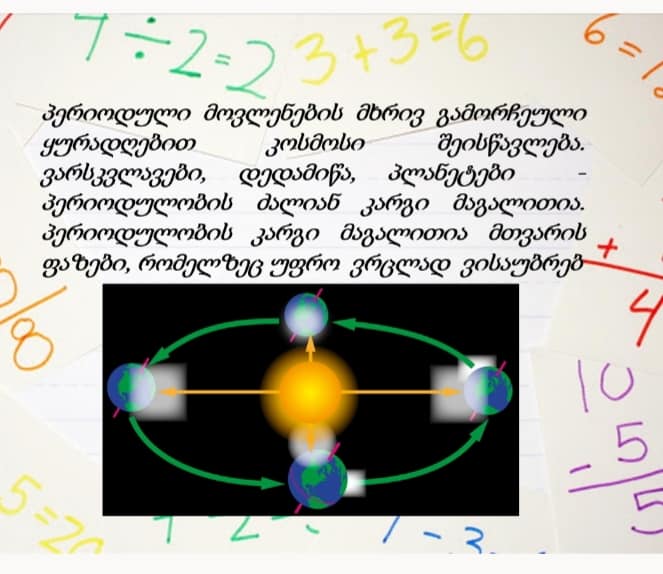 7÷2=2 3+3=6
6=
პერიოდული მოვლენების მხრივ გამორჩეული
ყურადღებით კოსმოსი შეისწავლება.
ვარსკვლავები, დედამიწა, პლანეტები -
პერიოდულობის ძალიან კარგი მაგალითია.
პერიოდულობის კარგი მაგალითია მთვარის
ფაზები, რომელზეც უფრო ვრცლად ვისაუბრებ
+
4
0/8
10
- 5
5
5=20
7 - 3